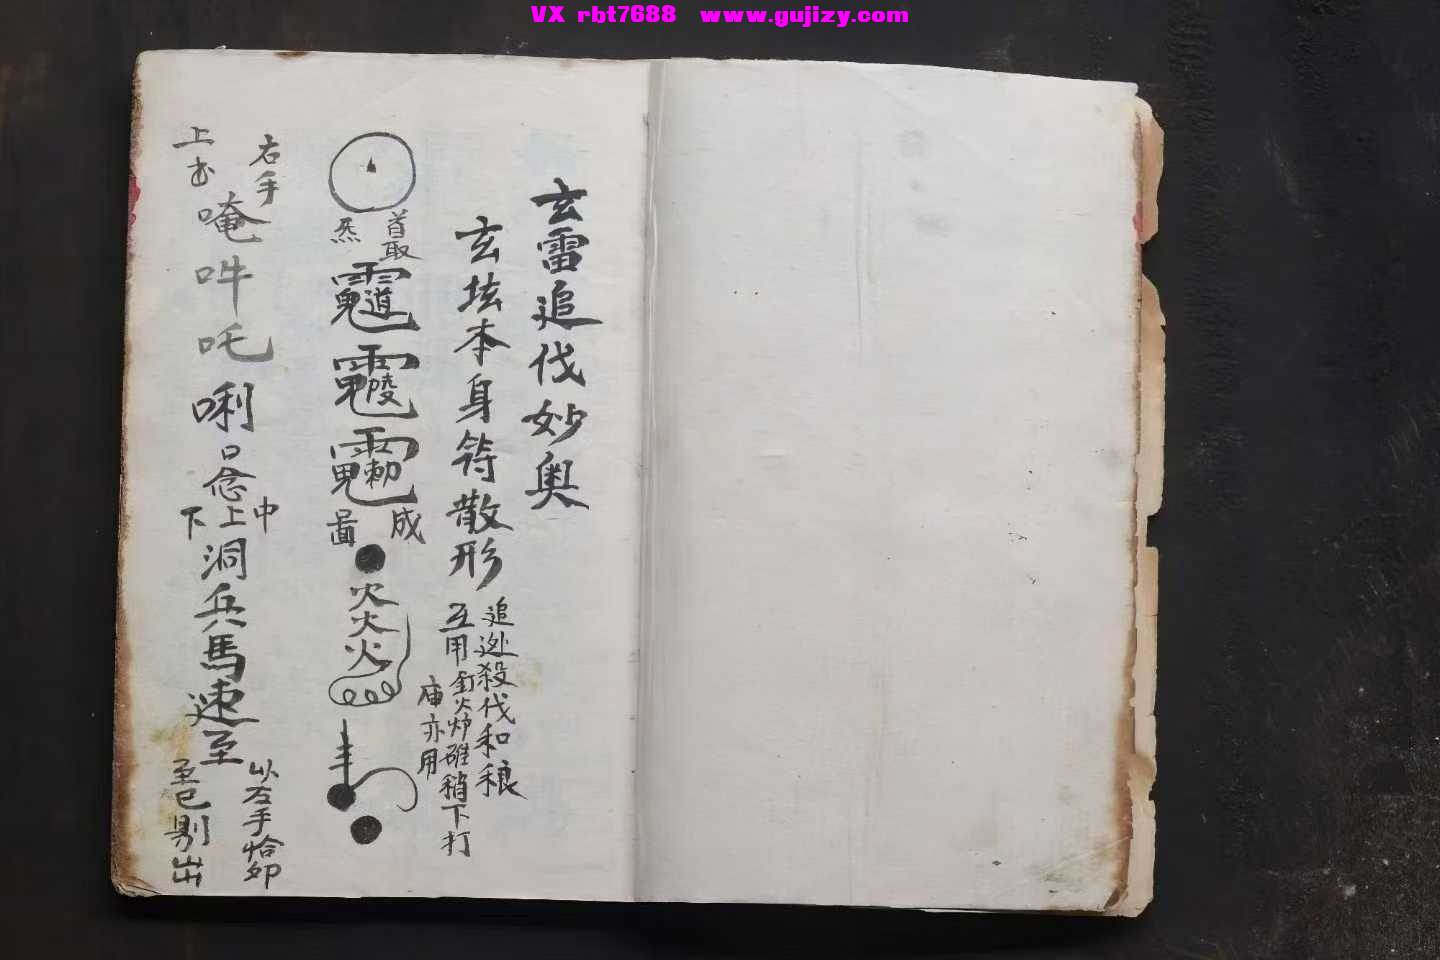 VX rbt7688 www.gujizy.com
玄雷追伐妙奥
玄坛本身符散形
追逊殺伐和粮
互用釘火炉碓稍下打
庙亦用
首取
炁
成
啚
火火火
右手
上书
唵吽吒唎
口念
中
上
下
洞兵馬速至
以左手恰卯
至巳剔出